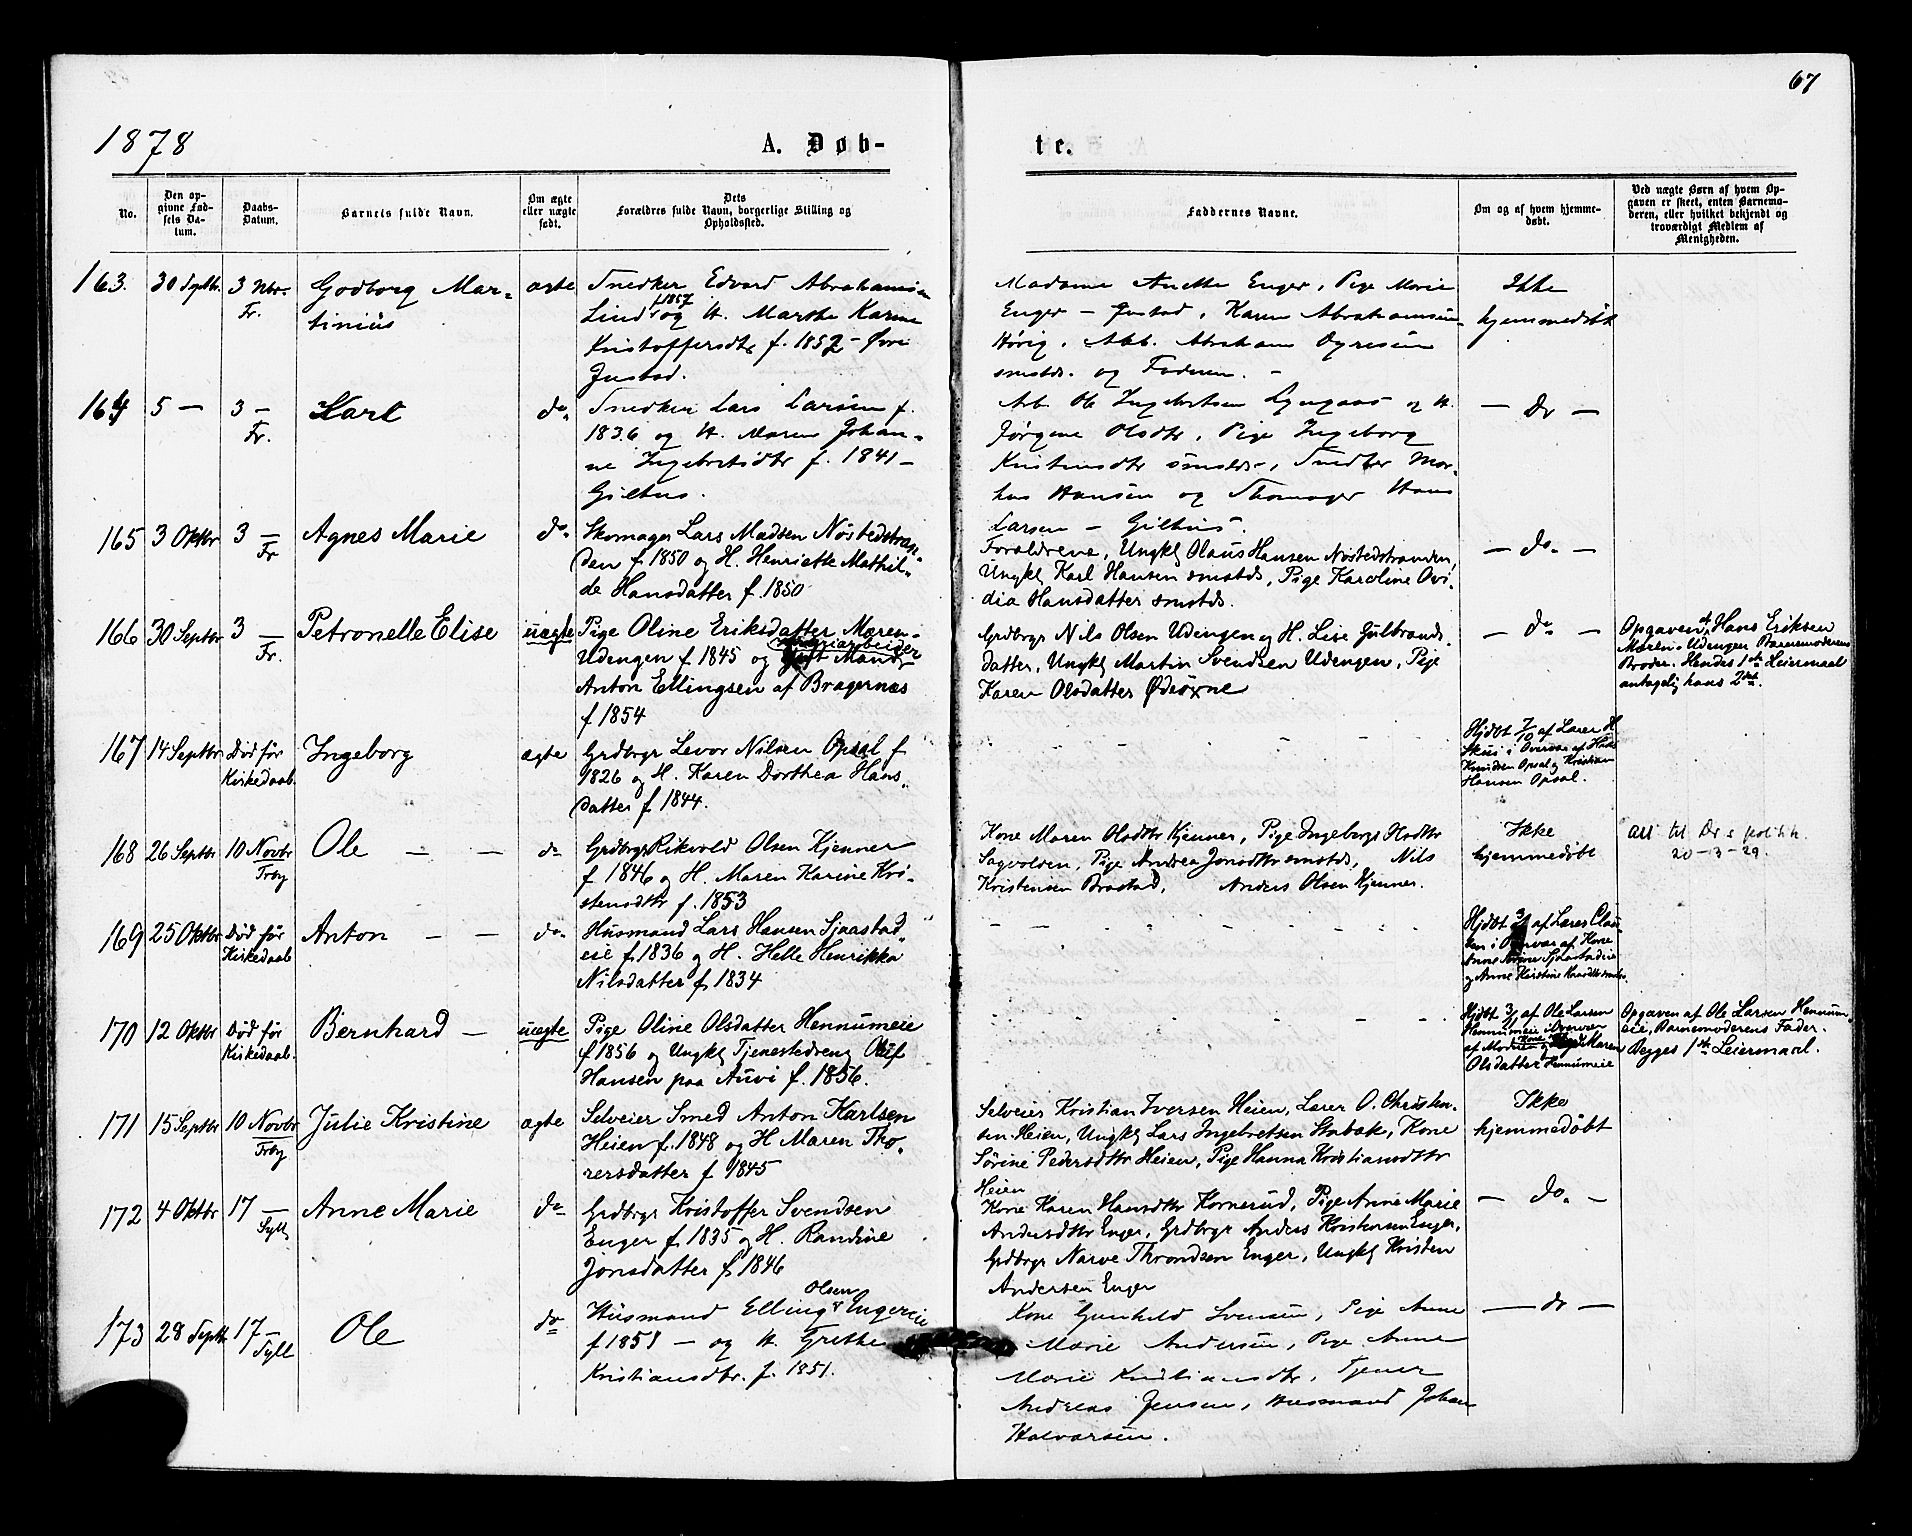 67
1878
A. Døb-
te.
No.
Den op-
givne Fød-
sels Da-
tum.
Daabs-
Datum.
Barnets fulde Navn.
Om ægte
eller uægte
født.
Dets
Forældres fulde Navn, borgerlige Stilling og
Opholdssted.
Faddernes Navne.
Om og af hvem hjemme-
døbt.
Ved uægte Børn af hvem Op-
gaven er skeet, enten Barnemo-
deren, eller hvilket bekjendt og
troværdigt Medlem af
Menigheden.
163. 30 Septbr. 3 Nbr. Godborg Mar-
Fr. tinius
ægte Snedker Edvard Abrahamsen
Lind f 1857 og H. Marthe Karine
Kristoffersdtr f. 1857 - Øvre
Justad.
Madame Anette Enger, Pige Marie
Enger - Justad, Karen Abrahamsen
Hørig, Arb. Abraham
smstds. og Faderen. -
Ikke
hjemmedøbt
164 5 — 3 — Karl do.
Fr.
Snedker Lars Larsen f.
1836 og H. Maren Johan-
ne Ingebretsdtr f. 1841 -
Gilhus.
Arb. Ole Ingebretsen Lyngaas og H.
Jørgine Olsdtr, Pige Ingeborg
Kristensdtr smstds -, Snedker Mar-
kus Hansen og Skomager Hans
Larsen - Gilhus.
— do —
165 3 Oktbr 3 — Agnes Marie do.
Fr
Skomager Lars Madsen Nøstedstran-
den f. 1850 og H. Henriette Mathil-
de Hansdatter f. 1850
Forældrene, Ungkl Olaus Hansen Nøstedstranden,
Ungkl Karl Hansen smstds, Pige Karoline Ovi-
dia Hansdatter smstds.
— do. —
166 30 Septbr 3 — Petronelle Elise uægte
Fr.
Pige Oline Eriksdatter Mæren-
Udengen f. 1845 og gift Mand
Anton Ellingsen af Bragernæs
f. 1854
Grdbrgr Nils Olsen Udengen og H. Lise Gulbrands-
datter, Ungkl Martin Svendsen Udengen, Pige
Karen Olsdatter
— do —
Opgaven af Hans Eriksen
Mæren-Udengen Barnemoderens
Broder. Hendes 1ste Leiermaal
antagelig hans 2det.
167 14 Septbr Død før Ingeborg ægte
Kirkedaab
Grdbrgr Levor Nilsen Opsal f
1826 og H. Karen Dorthea Hans-
datter f 1844.
- - - - - - - -
Hjdøt 7/10 af Lærer H.
Skui i Overvær af Hans
Knudsen Opsal og Kristian
Hansen Opsal.
168 26 Septbr 10 Novbr Ole — — do
Frby
Grdbrgr Rikvold Olsen Kjenner
f 1846 og H. Maren Karine Kri-
stensdtr f. 1853
Kone Maren Olsdtr Kjenner, Pige Ingeborg Hsdtr
Sagvolden, Pige Andrea Jonsdtr smstds, Nils
Kristensen Brastad, Anders Olsen Kjenner.
Ikke
hjemmedøbt
att til Dr s politik.
20-13-29.
169 25 Oktbr Død før Anton — — do.
Kirkedaab
Husmand Lars Hansen Sjaastad-
eie f. 1836 og H. Helle Henrikka
Nilsdatter f. 1834
- - - - - - - -
Hjdøt af Lærer Clau-
sen i Overvær af Kone
Anne Sjaastadeie
og Anne Kristine
170 12 Oktbr Død før Bernhard — uægte
Kirkedaab.
Pige Oline Olsdatter Hennumeie
f. 1856 og Ungkl Tjenestedreng Oluf
Hansen paa Auvi f. 1856.
- - - - - - - -
Hjdøt af Ole Larsen
Hennumeie i Overvær
af Moderen og Maren
Olsdatter Hennumeie
Opgaven af Ole Larsen Hennum-
eie, Barnemoderens Fader.
Begges 1ste Leiermaal.
171 15 Septbr 10 Novbr Julie Kristine ægte
Frby
Selveier Smed Anton Karlsen
Heien f. 1848 og H Maren Tho-
rersdatter f 1845
Selveier Kristian Iversen Heien, Lærer O. Christen-
sen Heien, Ungkl Lars Ingebretsen Stabæk, Kone
Sørine Pedersdtr Heien, Pige Hanna Kristiansdtr
Heien
Ikke
hjemmedøbt
172 4 Oktbr 17 — Anne Marie do
Syll
Grdbrgr Kristoffer Svendsen
Enger f. 1835 og H. Randine
Jonsdatter f. 1846
Kone Karen Hansdtr Kornerud, Pige Anne Marie
Andersdtr Enger, Grdbrgr Anders Kristensen Enger,
Grdbrgr Narve Throndsen Enger, Ungkl Kristen
Andersen Enger
— do. —
173 28 Septbr 17 — Ole do
Sylt
Husmand Elling Olsen Engereie
f 1851 — og H. Grethe
Kristiansdtr. f. 1851.
Kone Gunhild Svensen, Pige Anne
Marie Andersen, Pige Anne
Marie Kristiansdtr, Tjener
Andreas Jensen, Husmand Johan
Halvorsen.
— do —